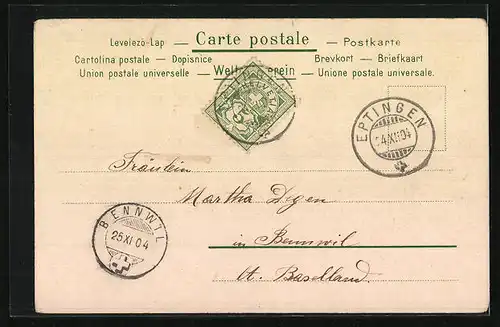 Levelezö-Lap — Carte postale — Postkarte
Cartolina postale — Dopisnice Brevkort — Briefkaart
Union postale universelle — Weltpostverein — Unione postale universale.
EPTINGEN
24.XI.04
Fräulein
Martha Degen
in Bennwil
Kt. Baselland.
BENNWIL
25.XI.04